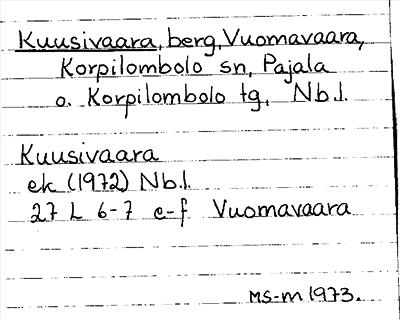 Kuusivaara, berg, Vuomavaara,
Korpilombolo sn, Pajala
o. Korpilombolo tg, Nb.l.
Kuusivaara
ek (1972) Nb.l.
27 L 6-7 e-f Vuomavaara
MS-m 1973.